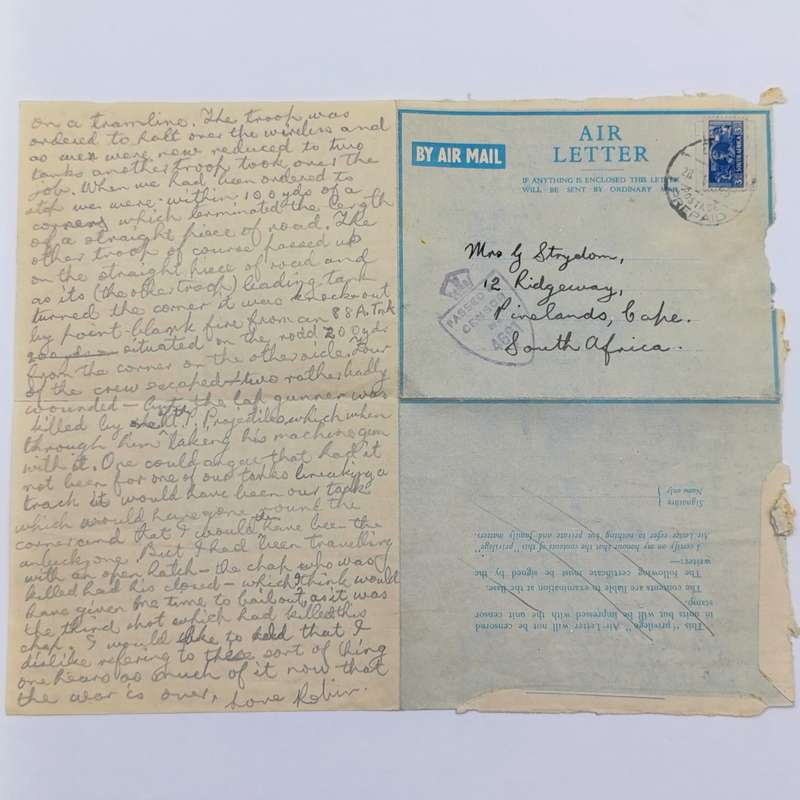 on a tramline. The troop was
ordered to halt over the wireless and
as we were now reduced to two
tanks another troop took over the
job. When we had been ordered to
stop we were within 100 yds of a
corner which terminated the length
of a straight piece of road. The
other troop of course passed up
on the straight piece of road and
as its (the other troop) leading tank
turned the corner it was knocked out
by point-blank fire from an 88 A. Tnk
situated on the road 200 yds
from the corner on the other side. Four
of the crew escaped – two rather badly
wounded – but the lap gunner was
killed by the Projectile which when
through him taking his machine gun
with it. One could argue that had it
not been for one of our tanks breaking a
track it would have been our tank
which would have gone round the
corner and that I would then have been the
unlucky one. But I had been travelling
with an open hatch – the chap who was
killed had his closed – which I think would
have given me time to bail out, as it was
the third shot which had killed this
chap. I would like to add that I
dislike refering to these sort of thing
one hears so much of it now that
the war is over, Love Robin.
BY AIR MAIL
AIR
LETTER
IF ANYTHING IS ENCLOSED THIS LETTER
WILL BE SENT BY ORDINARY
SOUTH AFRICA
3
PREPAID
PASSED
CENSOR
Mrs G Strydom,
12 Ridgeway,
Pinelands, Cape.
South Africa.
This "privilege" Air Letter will not be censored
in units but will be impressed with the unit censor
stamp.
The contents are liable to examination at the Base.
The following certificate must be signed by the
writer:—
I certify on my honour that the contents of this "privilege"
Air Letter refer to nothing but private and family matters.
Signature
Name only